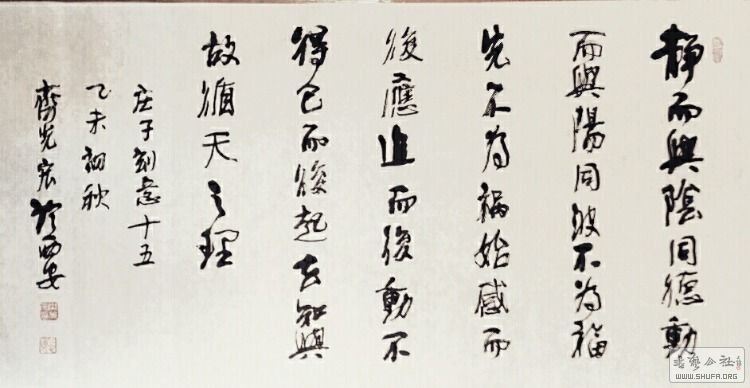 靜而與陰同德動
而與陽同波不為福
先不為禍始感而
後應迫而後動不
得已而後起去知與
故循天之理
庄子刻意十五
乙未初秋
齊光宏於西安
书艺公社
WWW.SHUFA.ORG